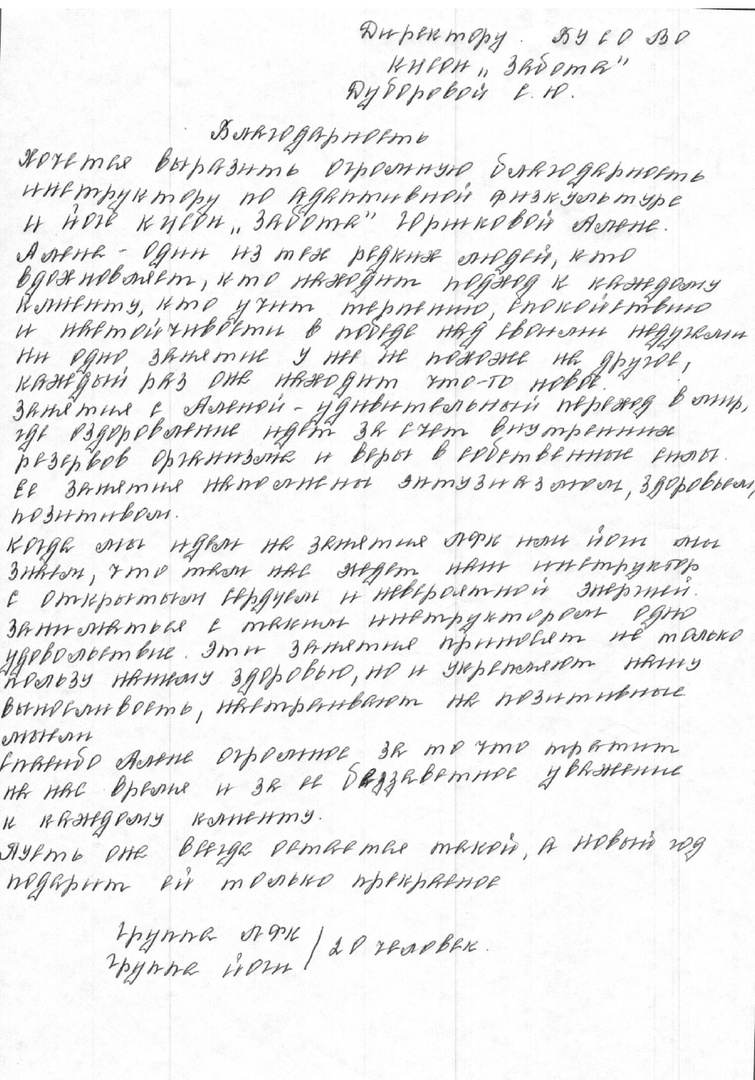 Директору БУСОВО
КЦСОН „Забота"
Дуборовой С.Ю.
Благодарность
Хочется выразить огромную благодарность
инструктору по адаптивной физкультуре
и йоге КЦСОН „Забота" Горшковой Алене.
Алена - один из тех редких людей, кто
вдохновляет, кто находит подход к каждому
клиенту, кто учит терпению, спокойствию
и настойчивости в победе над своими недугами
Ни одно занятие у нее не похоже на другое,
каждый раз она находит что-то новое.
Занятия с Аленой - удивительный переход в мир,
где оздоровление идет за счет внутренних
резервов организма и веры в собственные силы.
Ее занятия наполнены энтузиазмом, здоровьем,
позитивом.
Когда мы идем на занятия ЛФК или йоги мы
знаем, что там нас ждет наш инструктор
с открытым сердцем и невероятной энергией.
Заниматься с таким инструктором одно
удовольствие. Эти занятия приносят не только
пользу нашему здоровью, но и укрепляют нашу
выносливость, настраивают на позитивные
мысли
Спасибо Алене огромное за то что тратит
на нас время и за ее беззаветное уважение
к каждому клиенту.
Пусть она всегда остается такой, а новый год
подарит ей только прекрасное
Группа ЛФК
Группа йоги / 20 человек.